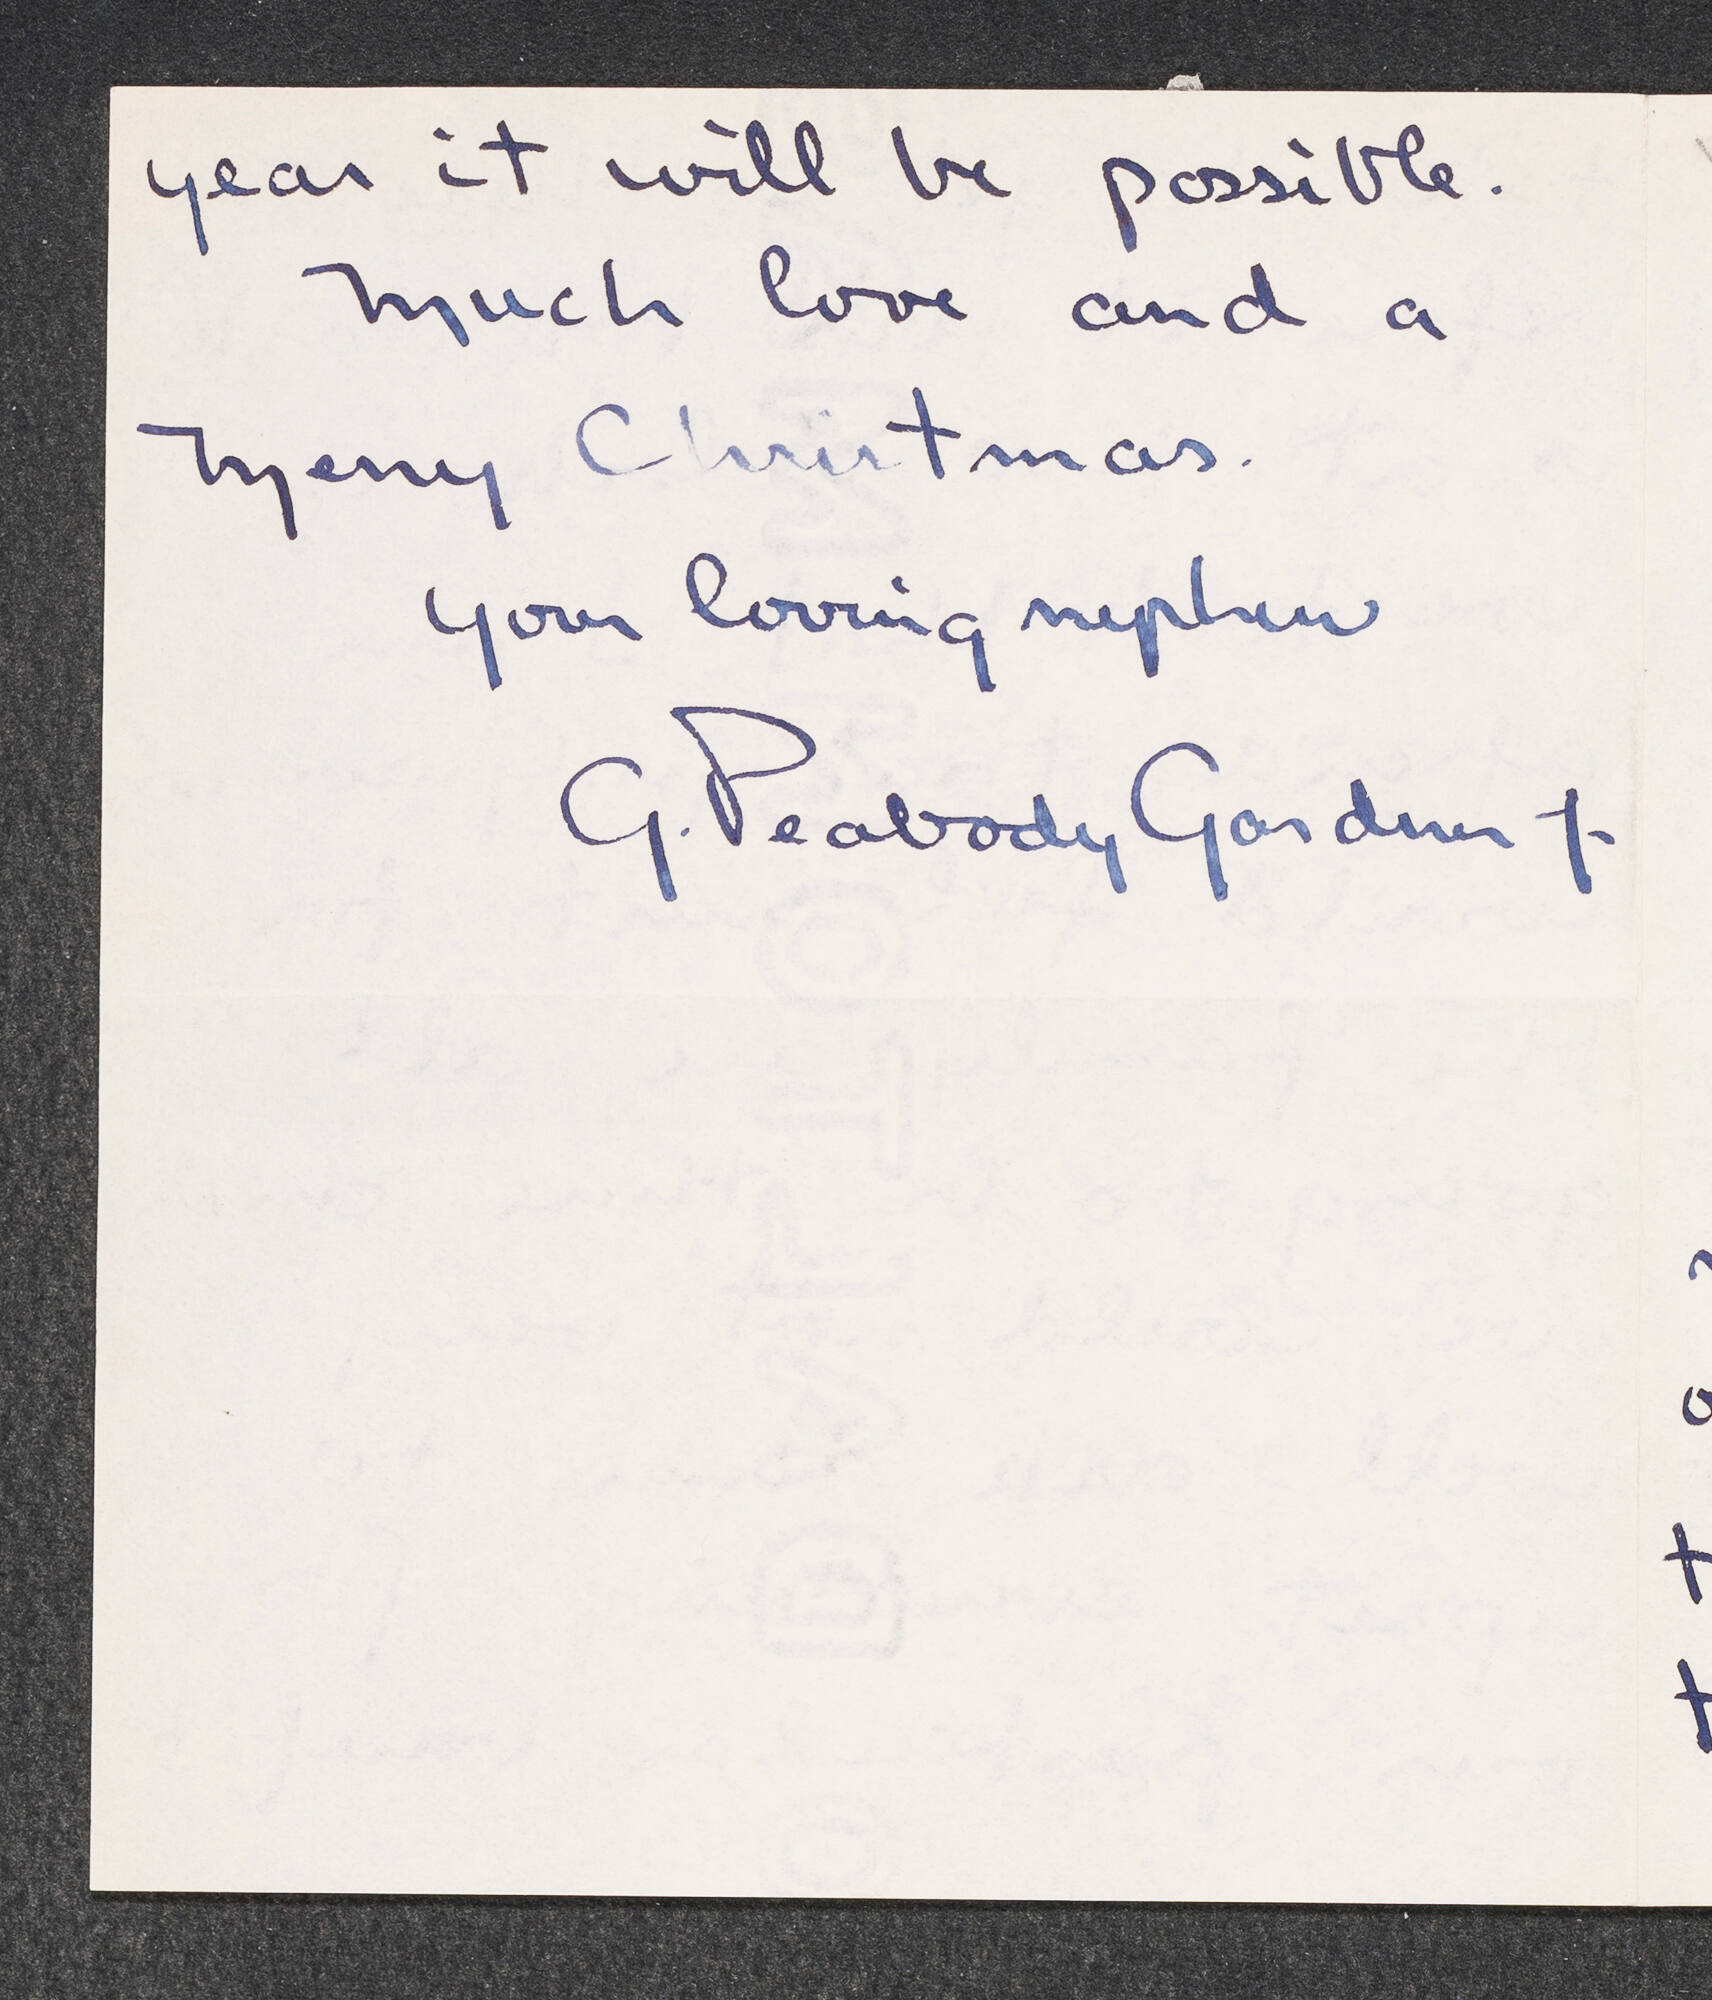 year it will be possible.
Much love and a
Merry Christmas.
Your loving nephew
G. Peabody Gardner Jr.